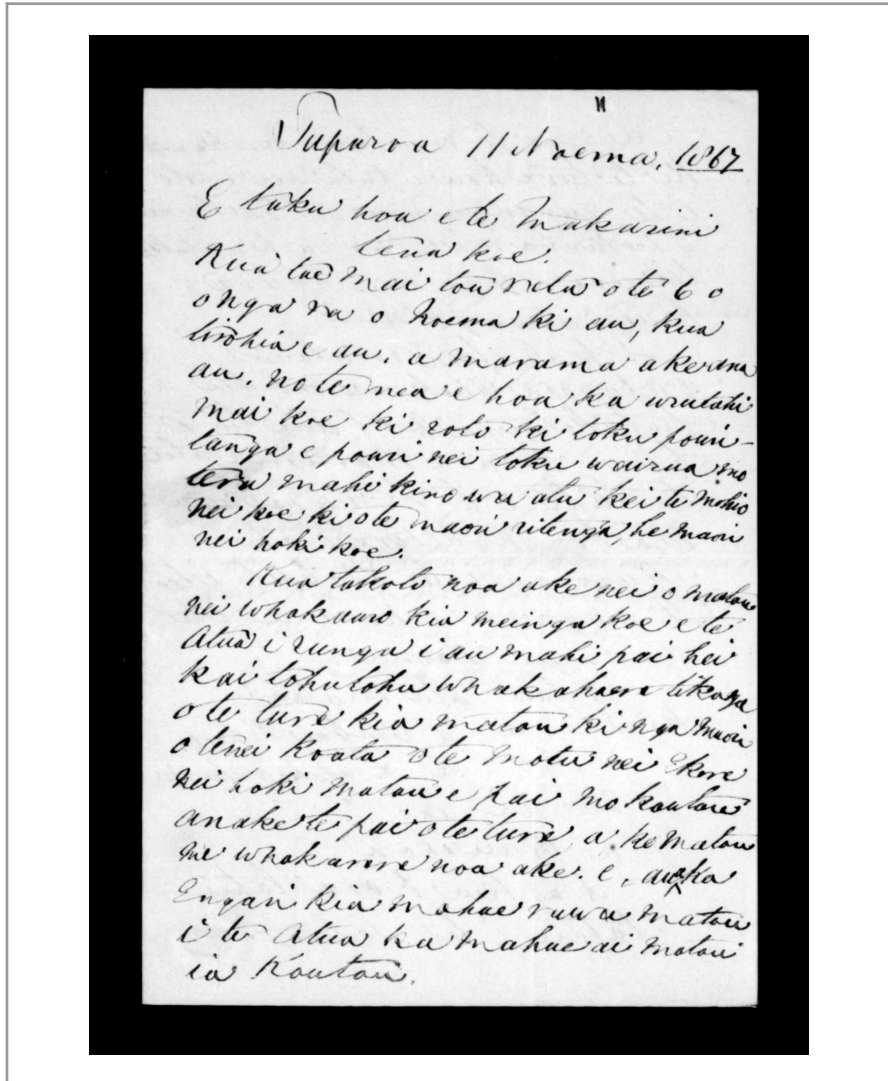 Tuparoa 11 Noema, 1867
E taku hoa e te Makarini
tena koe.
Kua tae mai tou reta o te 6 o
o nga ra o Noema ki au, kua
tirohia e au. a marama ake ana
au. no te mea e hoa ka urutahi
mai koe ki roto ki toku pouri-
tanga e pouri nei toku wairua mo
tera mahi kino wa atu kei te mohio
nei koe ki o te maori ritenga, he maori
nei hoki koe.
Kua takoto noa ake nei o matou
nei whakaaro kia meinga koe e te
Atua i runga i au mahi pai hei
kai tohutohu whakahaere tikanga
o te ture kia matou ki nga maori
o tenei Koata o te motu nei Ekore
nei hoki matou e pai mo koutou
anake te pai o te ture, a. ko matou
me whakarere noa ake. e,
Engari kia mahue rawa matou
i te Atua ka mahue ai matou
ia Koutou.